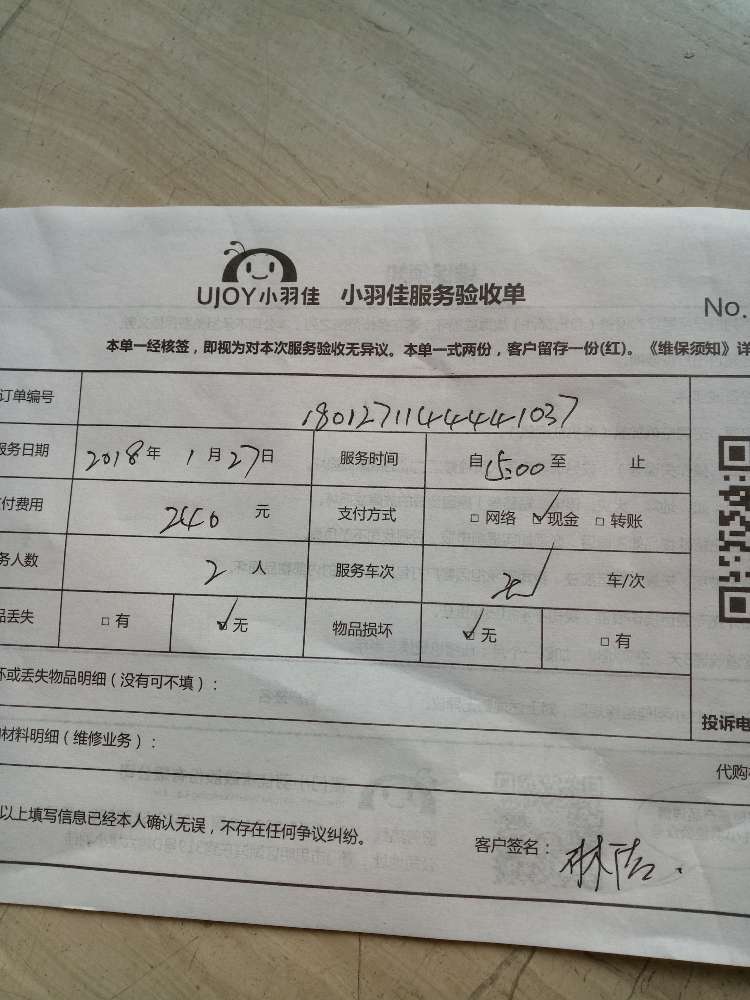 UJOY小羽佳 小羽佳服务验收单
No.
本单一经核签，即视为对本次服务验收无异议。本单一式两份，客户留存一份(红)。《维保须知》详
订单编号 180127114444441037
服务日期 2018年 1月27日 服务时间 自15:00至 止
付费用 240元 支付方式 □网络 ☑现金 □转账
务人数 2人 服务车次 车/次
品丢失 □有 ☑无 物品损坏 ☑无 □有
坏或丢失物品明细（没有可不填）：
材料明细（维修业务）：
投诉电
代购
以上填写信息已经本人确认无误，不存在任何争议纠纷。
客户签名：